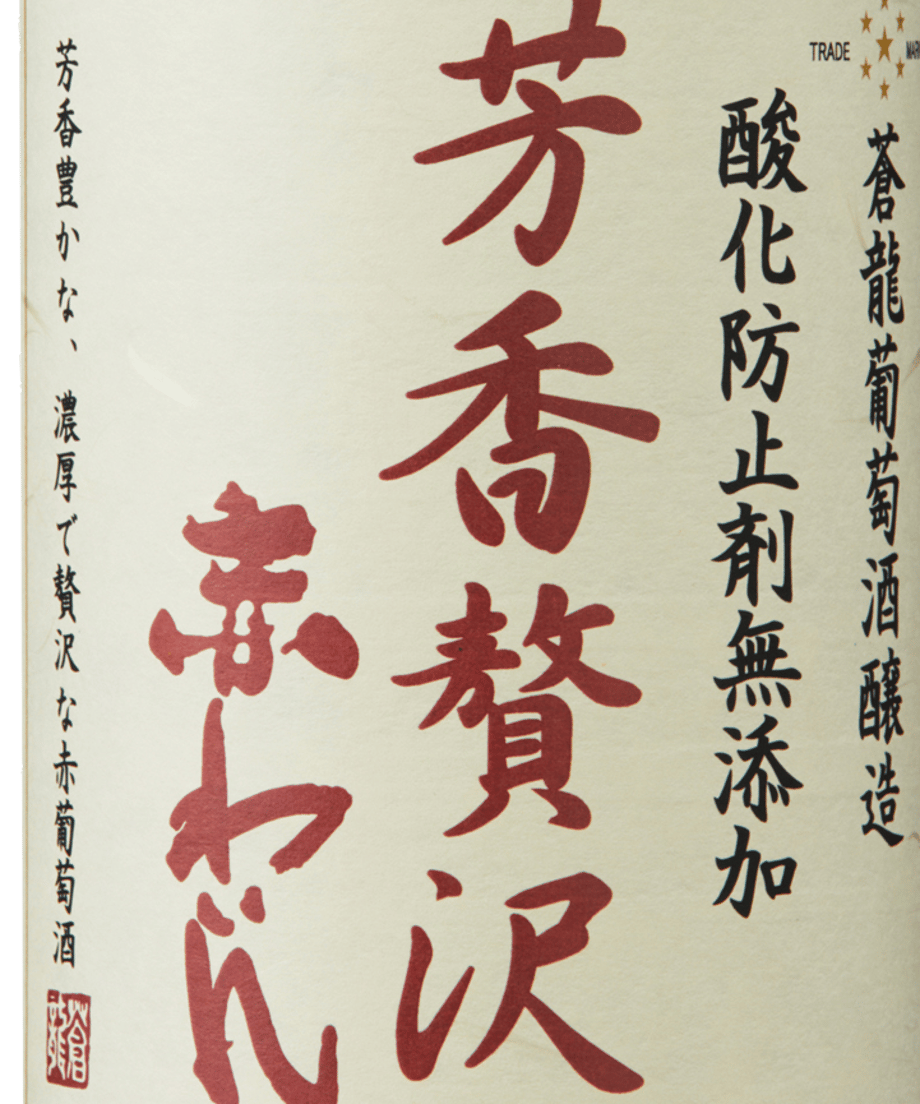 TRADE MARK
蒼龍葡萄酒醸造
酸化防止剤無添加
芳香贅沢
赤わいん
芳香豊かな、濃厚で贅沢な赤葡萄酒
蒼龍